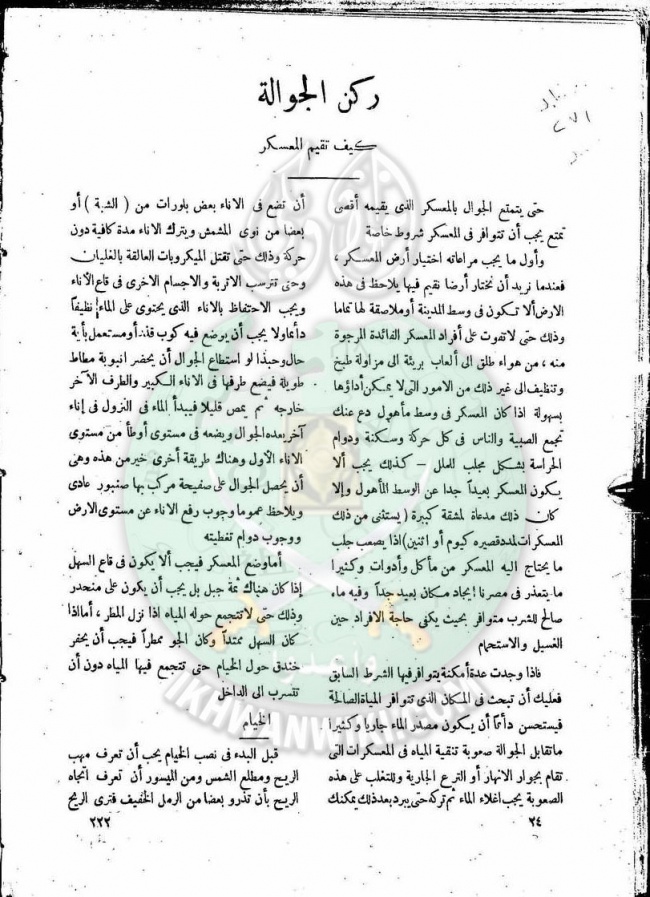 ركن الجوالة
كيف تقيم المعسكر
حتى يتمتع الجوال بالمعسكر الذى يقيمه أقصى
تمتع يجب أن تتوافر فى المعسكر شروط خاصة
وأول ما يجب مراعاته اختيار أرض المعسكر ،
فعندما نريد أن نختار أرضا نقيم فيها يلاحظ فى هذه
الارض ألا تكون فى وسط المدينة أو ملاصقة لها تماما
وذلك حتى لا تفوت على أفراد المعسكر الفائدة المرجوة
منه ، من هواء طلق الى ألعاب بريئة الى مزاولة طبخ
وتنظيف الى غير ذلك من الامور التى لا يمكن أداؤها
بسهولة اذا كان المعسكر فى وسط مأهول دع عنك
تجمع الصبية والناس فى كل حركة وسكنة ودوام
الحراسة بشكل مجلب للملل – كذلك يجب ألا
يكون المعسكر بعيداً جدا عن الوسط المأهول وإلا
كان ذلك مدعاة لمشقة كبيرة ( يستثنى من ذلك
المعسكرات لمدد قصيره كيوم أو اثنين ) اذا يصعب جلب
ما يحتاج اليه المعسكر من مأكل وأدوات وكثيرا
ما يتعذر فى مصرنا ايجاد مكان بعيد جداً وفيه ماء
صالح للشرب متوافر بحيث يكفى حاجة الافراد حين
الغسيل والاستحمام
فاذا وجدت عدة أمكنة يتوافر فيها الشرط السابق
فعليك أن تبحث فى المكان الذى تتوافر المياة الصالحة
فيستحسن دائماً أن يكون مصدر الماء جاريا وكثيرا
ما تقابل الجوالة صعوبة تنقية المياه فى المعسكرات التى
تقام بجوار الانهار أو الترع الجارية وللتغلب على هذه
الصعوبة يجب اغلاء الماء ثم تركه حتى يبرد بعد ذلك يمكنك
٢٤
أن تضع فى الاناء بعض بلورات من ( الشبة ) أو
بعضا من نوى المشمش ويترك الاناء مدة كافية دون
حركة وذلك حتى تقتل الميكروبات العالقة بالغليان
وحتى تترسب الاتربة والاجسام الاخرى فى قاع الأناء
ويجب الاحتفاظ بالاناء الذى يحتوى على الماء نظيفاً
دائما ولا يجب أن يوضع فيه كوب قذر أو مستعمل بأية
حال وحبذا لو استطاع الجوال أن يحضر انبوبة مطاط
طويلة فيضع طرفها فى الاناء الكبير والطرف الآخر
خارجه ثم يمص قليلا فيبدأ الماء فى النزول فى إناء
آخر يعده الجوال ويضعه فى مستوى أوطأ من مستوى
الاناء الأول وهناك طريقة أخرى خير من هذه وهى
أن يحصل الجوال على صفيحة مركب بها صنبور عادى
ويلاحظ عموما وجوب رفع الاناء عن مستوى الارض
ووجوب دوام تغطيته
أما وضع المعسكر فيجب ألا يكون فى قاع السهل
إذا كان هناك ثمة جبل بل يجب أن يكون على منحدر
وذلك حتى لا تتجمع حوله المياه اذا نزل المطر ، أما اذا
كان السهل ممتداً وكان الجو ممطراً فيجب أن يحفر
خندق حول الخيام حتى تتجمع فيها المياه دون أن
تتسرب الى الداخل
الخيام
قبل البدء فى نصب الخيام يجب أن تعرف مهب
الريح ومطلع الشمس ومن الميسور أن تعرف اتجاه
الريح بأن تذرو بعضا من الرمل الخفيف فترى الريح
٢٢٢
IKHWANWIKI.COM
وأعدوا